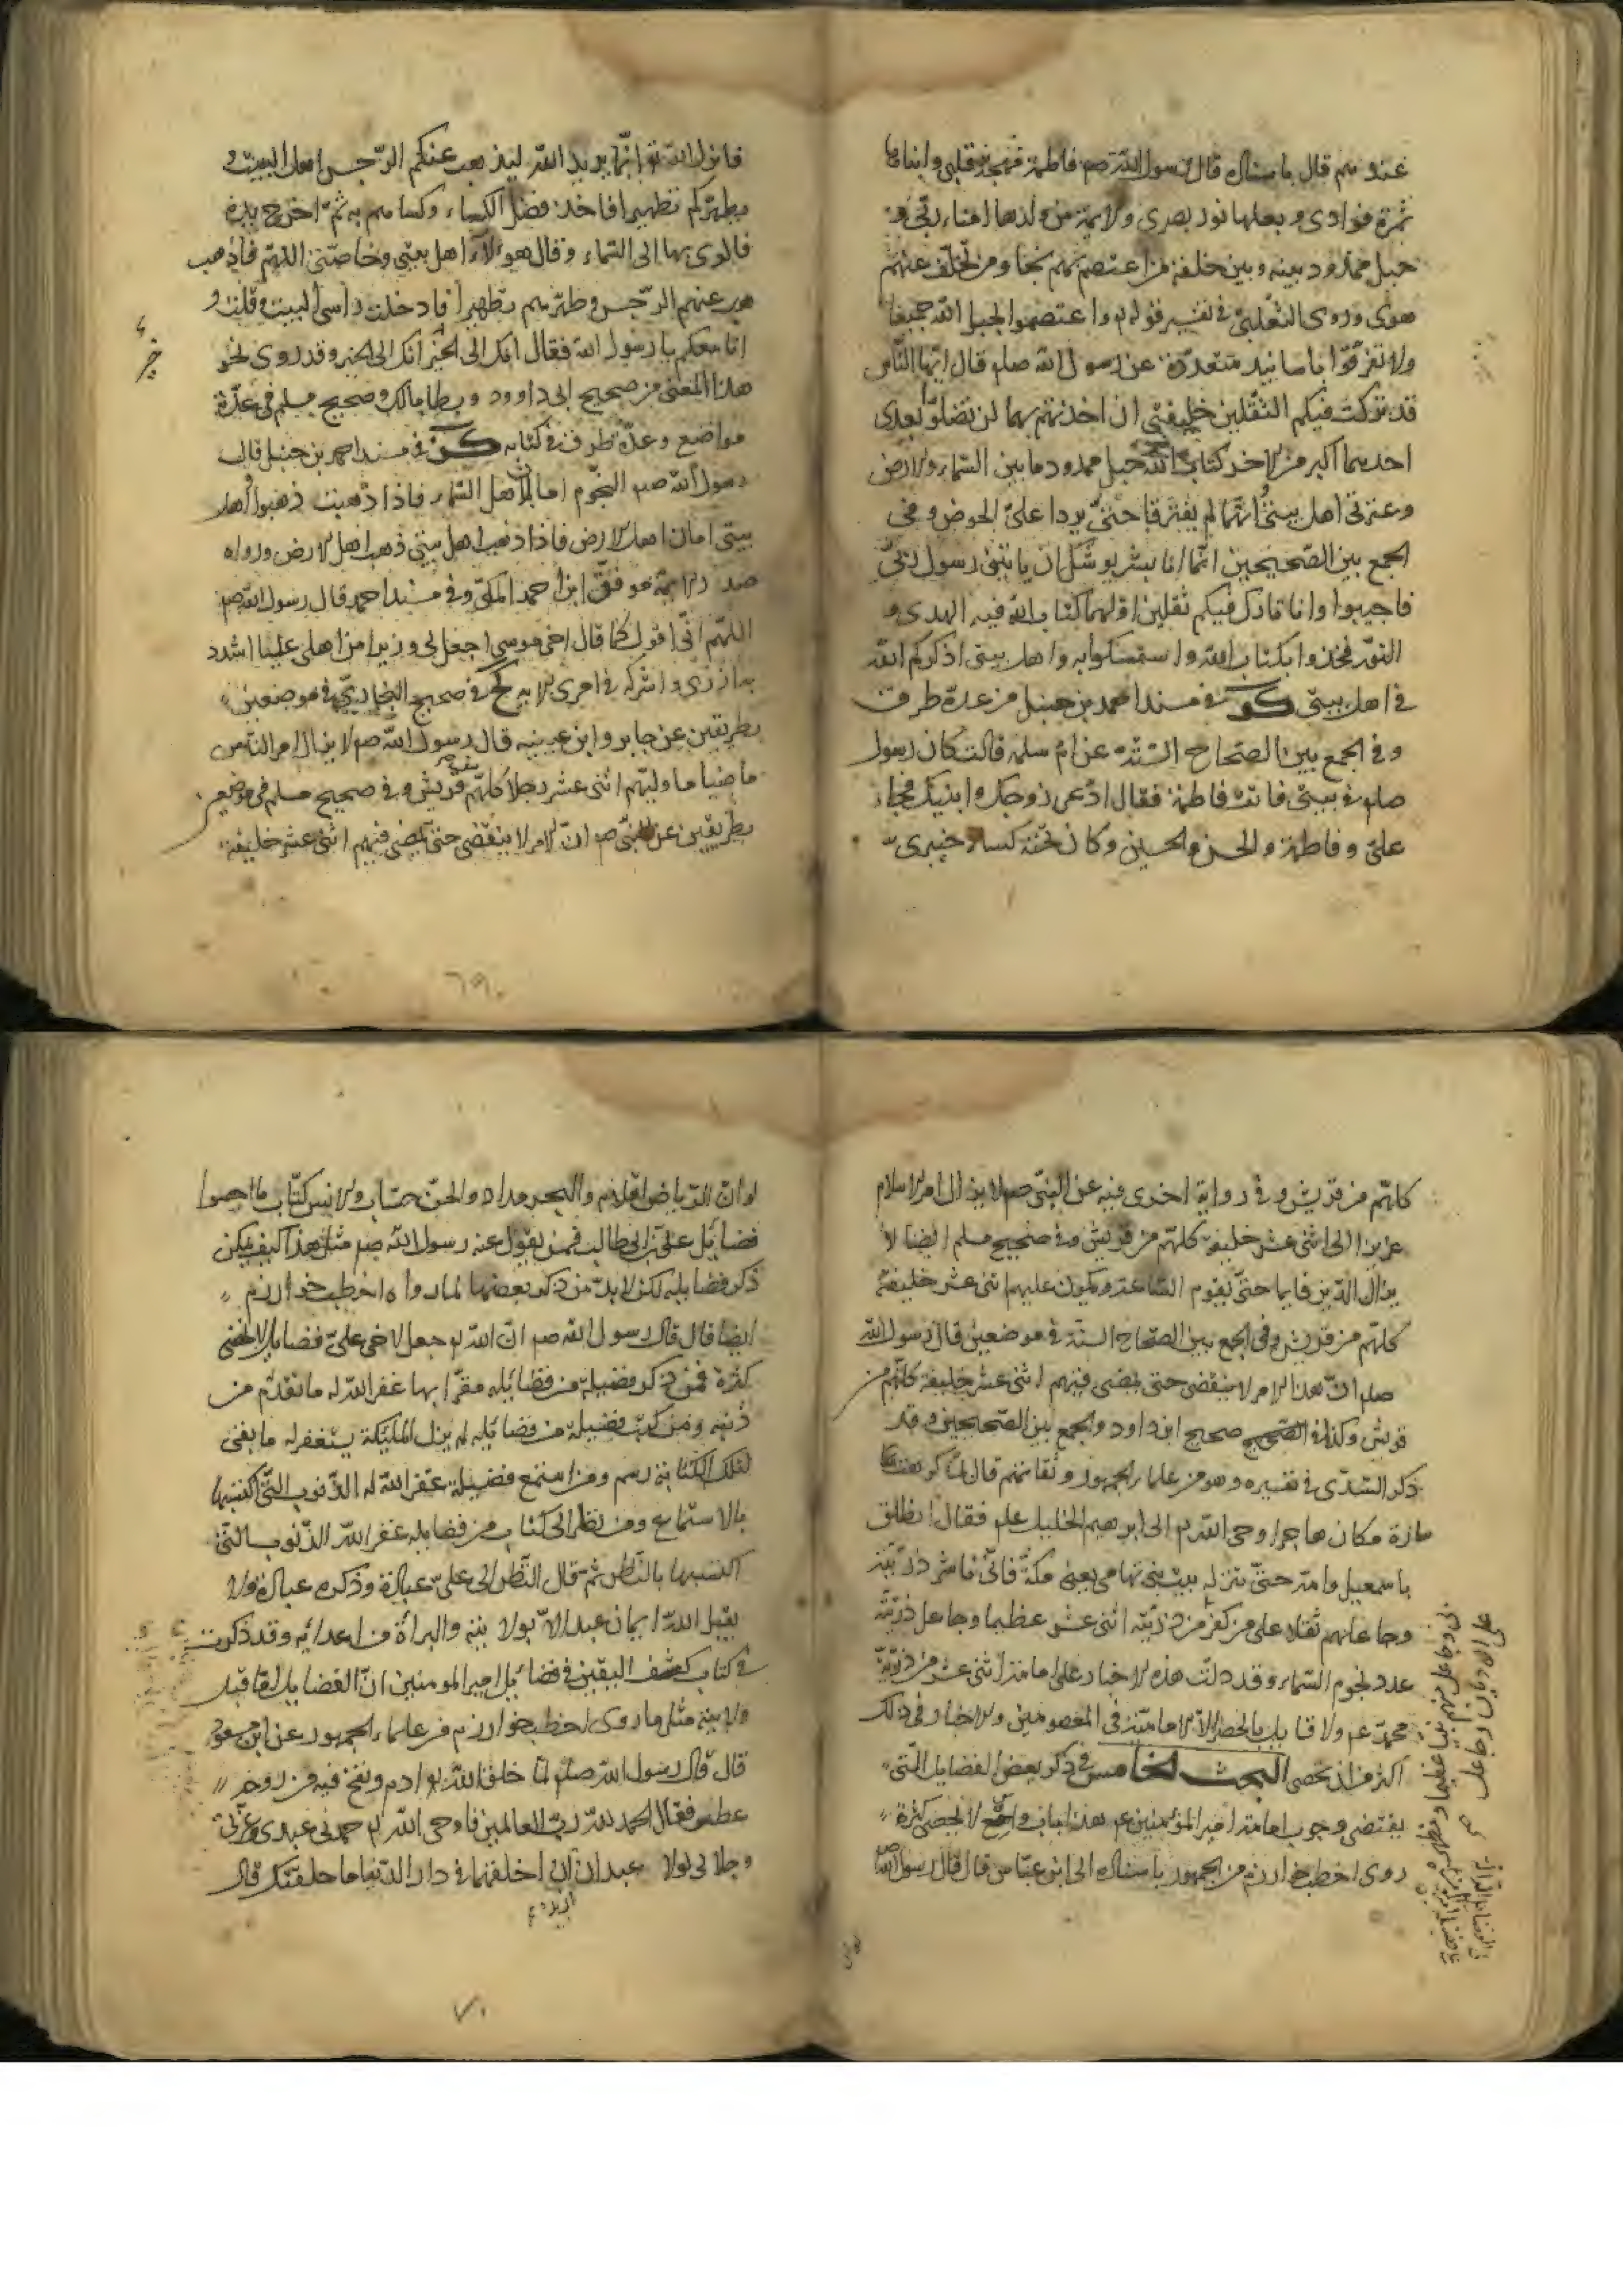 عندهم قال باسناده قال رسول الله صم فاطمة مهجة قلبى وابناها
ثمرة فوادى وبعلها نور بصرى والايمة من ولدها امناء ربى و
حبل ممدود بينه وبين خلقه من اعتصم بهم نجا ومن تخلف عنهم
هوى وروى الثعلبى فى تفسير قوله تع واعتصموا بحبل الله جميعا
ولا تفرقوا باسانيد متعددة عن رسول الله صلم قال ايها الناس
قد تركت فيكم الثقلين خليفتى ان اخذتم بهما لن تضلوا بعدى
احدهما اكبر من الاخر كتاب الله حبل ممدود ما بين السماء والارض
وعترتى اهل بيتى وانهما لم يفترقا حتى يردا على الحوض وفى
الجمع بين الصحيحين انما انا بشر يوشك ان ياتينى رسول ربى
فاجيبوا وانا تارك فيكم ثقلين اولهما كتاب الله فيه الهدى و
النور فخذوا بكتاب الله واستمسكوا به واهل بيتى اذكركم الله
فى اهل بيتى فى مسند احمد بن حنبل من عدة طرف
وفى الجمع بين الصحاح الستة عن ام سلمة قالت كان رسول
صلم فى بيتى فاتت فاطمة فقال ادعى زوجك وابنيك فجاء
على وفاطمة والحسن والحسين وكان تحته كساء خيبرى
فانزل الله تع انما يريد الله ليذهب عنكم الرجس اهل البيت و
يطهركم تطهيرا فاخذ فضل الكساء وكساهم به ثم اخرج يده
فالوى بها الى السماء وقال هؤلاء اهل بيتى وخاصتى اللهم فاذهب
عنهم الرجس وطهرهم تطهيرا فادخلت راسى البيت وقلت و
انا معكم يا رسول الله فقال انك الى الخير انك الى الخير وقد روى نحو
هذا المعنى من صحيح ابى داوود وموطا مالك وصحيح مسلم فى عدة
مواضع وعدة طرف فى كتابه فى مسند احمد بن حنبل قال
رسول الله صم النجوم امان لاهل السماء فاذا ذهبت ذهبوا واهل
بيتى امان اهل الارض فاذا ذهب اهل بيتى ذهب اهل الارض ورواه
صدر الايمة موفق ابن احمد المكى وفى مسند احمد قال رسول الله صم
اللهم انى اقول كما قال اخى موسى اجعل لى وزيرا من اهلى عليا اشدد
به ازرى واشركه فى امرى الاية فى صحيح البخارى فى موضعين
بطريقين عن جابر وابن عيينه قال رسول الله صم لا يزال امر الناس
ماضيا ما وليهم اثنى عشر رجلا كلهم من قريش وفى صحيح مسلم فى موضع
بطريقين عن النبى صم ان الامر لا ينقضى حتى يمضى فيهم اثنى عشر خليفة
٦٩
كلهم من قريش وفى رواية اخرى فيه عن النبى صم لا يزال امر الاسلام
عزيزا الى اثنى عشر خليفة كلهم من قريش وفى صحيح مسلم ايضا لا
يزال الدين قايما حتى يقوم الساعة ويكون عليهم اثنى عشر خليفة
كلهم من قريش وفى الجمع بين الصحاح الستة فى موضعين قال رسول الله
صلم ان هذا الامر لا ينقضى حتى يمضى فيهم اثنى عشر خليفة كلهم من
قريش وكذا فى صحيح ابى داود والجمع بين الصحيحين وقد
ذكر السدى فى تفسيره وهو من علماء الجمهور وثقاتهم قال لما كرهت
سارة مكان هاجر اوحى الله تع الى ابرهيم الخليل علم فقال انطلق
باسمعيل وامه حتى تنزله بيتى تهامى يعنى مكة فانى ناشر ذريته
وجاعلهم ثقلا على من كفر من ذريته اثنى عشر عظيما وجاعل ذريته
عدد نجوم السماء وقد دلت هذه الاخبار على امامة اثنى عشر من ذرية
محمد عم ولا قايل بالحصر الا الامامية فى المعصومين والاخبار فى ذلك
اكثر من ان تحصى البحث الخامس فى ذكر بعض الفضايل التى
يقتضى وجوب امامة امير المؤمنين عم هذا باب واسع لا يحصى كثرة
روى اخطب خوارزم من الجمهور باسناده الى ابن عباس قال قال رسول الله
لو ان الرياض اقلام والبحر مداد والجن حساب والانس كتاب ما احصوا
فضائل على بن ابى طالب فمن يقول عنه رسول الله صم مثل هذا كيف يمكن
ذكر فضايله لكن لا بد من ذكر بعضها لما رواه اخطب خوارزم
ايضا قال قال رسول الله صم ان الله تع جعل لاخى على فضايل لا تحصى
كثرة فمن ذكر فضيلة من فضائله مقرا بها غفر الله له ما تقدم من
ذنبه ومن كتب فضيلة من فضائله لم يزل الملئكة يستغفر له ما بقى
لتلك الكتابة رسم ومن استمع فضيلة غفر الله له الذنوب التى اكتسبها
بالاستماع ومن نظر الى كتاب من فضايله غفر الله الذنوب التى
اكتسبها بالنظر ثم قال النظر الى على عبادة وذكره عبادة ولا
يقبل الله ايمان عبد الا بولايته والبراة من اعدائه وقد ذكرت
فى كتاب كشف اليقين فى فضائل امير المومنين ان الفضايل اما قبل
ولايته مثل ما روى اخطب خوارزم من علماء الجمهور عن ابن مسعود
قال قال رسول الله صلم لما خلق الله تع ادم ونفخ فيه من روحه
عطس فقال الحمد لله رب العالمين فاوحى الله تع حمدنى عبدى وعزتى
وجلالى لولا عبدان اريد ان اخلقهما فى دار الدنيا ما خلقتك قال
٧٠